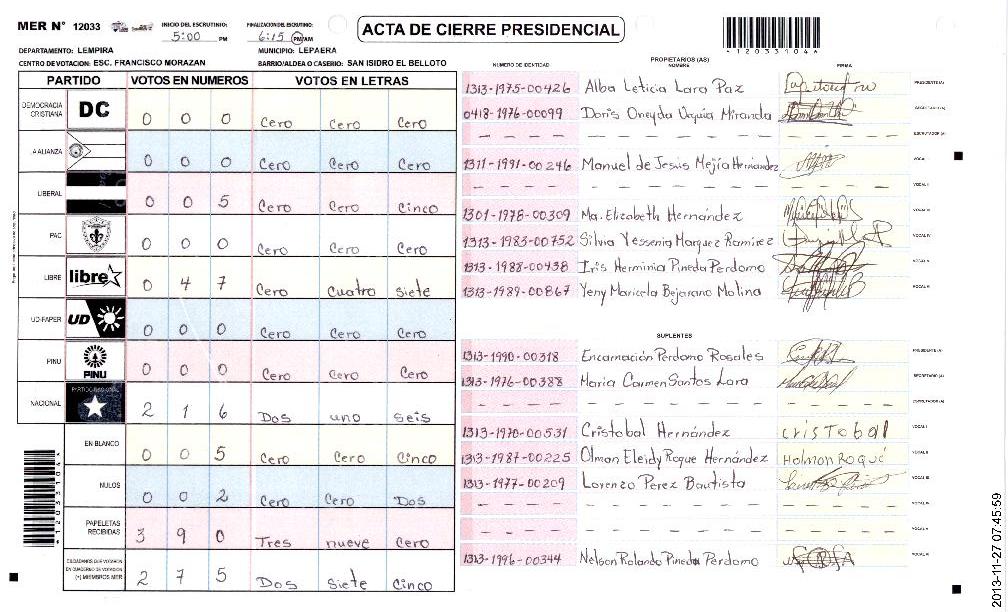 MER N° 12033
INICIO DEL ESCRUTINIO:
5:00 PM
FINALIZACION DEL ESCRUTINIO:
6:15 PM/AM
ACTA DE CIERRE PRESIDENCIAL
*12033104*
DEPARTAMENTO: LEMPIRA
MUNICIPIO: LEPAERA
CENTRO DE VOTACION: ESC. FRANCISCO MORAZAN
BARRIO/ALDEA O CASERIO: SAN ISIDRO EL BELLOTO
PARTIDO VOTOS EN NUMEROS VOTOS EN LETRAS
DEMOCRACIA CRISTIANA DC 0 0 0 Cero Cero Cero
A ALIANZA 0 0 0 Cero Cero Cero
LIBERAL 0 0 5 Cero Cero Cinco
PAC 0 0 0 Cero Cero Cero
LIBRE libre 0 4 7 Cero Cuatro Siete
UD-FAPER UD 0 0 0 Cero Cero Cero
PINU PINU 0 0 0 Cero Cero Cero
NACIONAL 2 1 6 Dos uno seis
EN BLANCO 0 0 5 Cero Cero Cinco
NULOS 0 0 2 Cero Cero Dos
PAPELETAS RECIBIDAS 3 9 0 Tres nueve Cero
CIUDADANOS QUE VOTARON EN CUADERNO DE VOTACION (+) MIEMBROS MER 2 7 5 Dos Siete Cinco
*12033104*
PROPIETARIOS (AS)
NUMERO DE IDENTIDAD NOMBRE FIRMA
1313-1975-00426 Alba Leticia Lara Paz PRESIDENTE (A)
0418-1976-00099 Doris Oneyda Urquia Miranda SECRETARIO (A)
— — — — ESCRUTADOR (A)
1311-1991-00246 Manuel de Jesus Mejía Hernández VOCAL I
— — — — VOCAL II
1301-1978-00309 Ma. Elizabeth Hernández VOCAL III
1313-1983-00752 Silvia Yessenia Marquez Ramirez VOCAL IV
1313-1988-00438 Iris Herminia Pineda Perdomo VOCAL V
1313-1989-00867 Yeny Maricela Bejarano Molina VOCAL VI
SUPLENTES
1313-1990-00318 Encarnación Perdomo Rosales PRESIDENTE (A)
1313-1976-00388 Maria Carmen Santos Lara SECRETARIO (A)
— — — — ESCRUTADOR (A)
1313-1970-00531 Cristobal Hernández cristobal VOCAL I
1313-1987-00225 Olman Eleidy Roque Hernández Holmon Roqué VOCAL II
1313-1977-00209 Lorenzo Perez Bautista VOCAL III
— — — — VOCAL IV
— — — — VOCAL V
1313-1996-00344 Nelson Rolando Pineda Perdomo VOCAL VI
2013-11-27 07:45:59